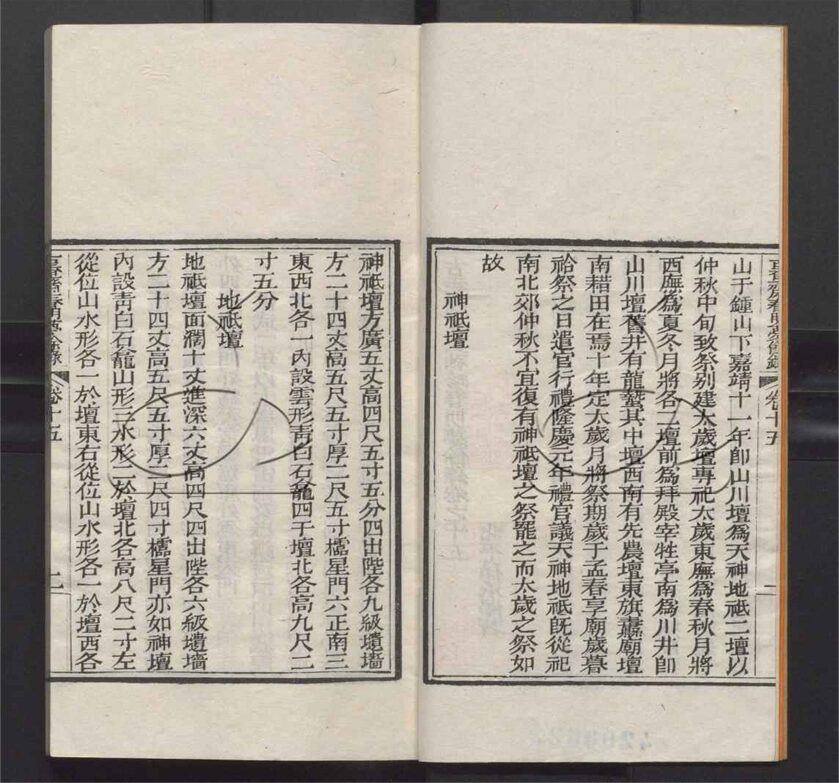 山于鍾山下嘉靖十一年卽山川壇爲天神地祇二壇以
仲秋中旬致祭别建太歲壇專祀太歲東廡爲春秋月將
西廡爲夏冬月將各二壇前爲拜殿宰牲亭南爲川井卽
山川壇舊井有龍蟄其中壇西南有先農壇東旗纛廟壇
南耤田在焉十年定太歲月將祭期歲于孟春享廟歲暮
祫祭之日遣官行禮隆慶元年禮官議天神地祇旣從祀
南北郊仲秋不宜復有神祇壇之祭罷之而太歲之祭如
故
神祇壇
神祇壇方廣五丈高四尺五寸五分四出陛各九級壝墻
方二十四丈高五尺五寸厚二尺五寸櫺星門六正南三
東西北各一內設雲形靑白石龕四于壇北各高九尺二
寸五分
地祇壇
地祇壇面濶十丈進深六丈高四尺四出陛各六級壝墻
方二十四丈高五尺五寸厚二尺四寸櫺星門亦如神壇
內設靑白石龕山形三水形二於壇北各高八尺二寸左
從位山水形各一於壇東右從位山水形各一於壇西各
春明夢餘錄 卷十五 二